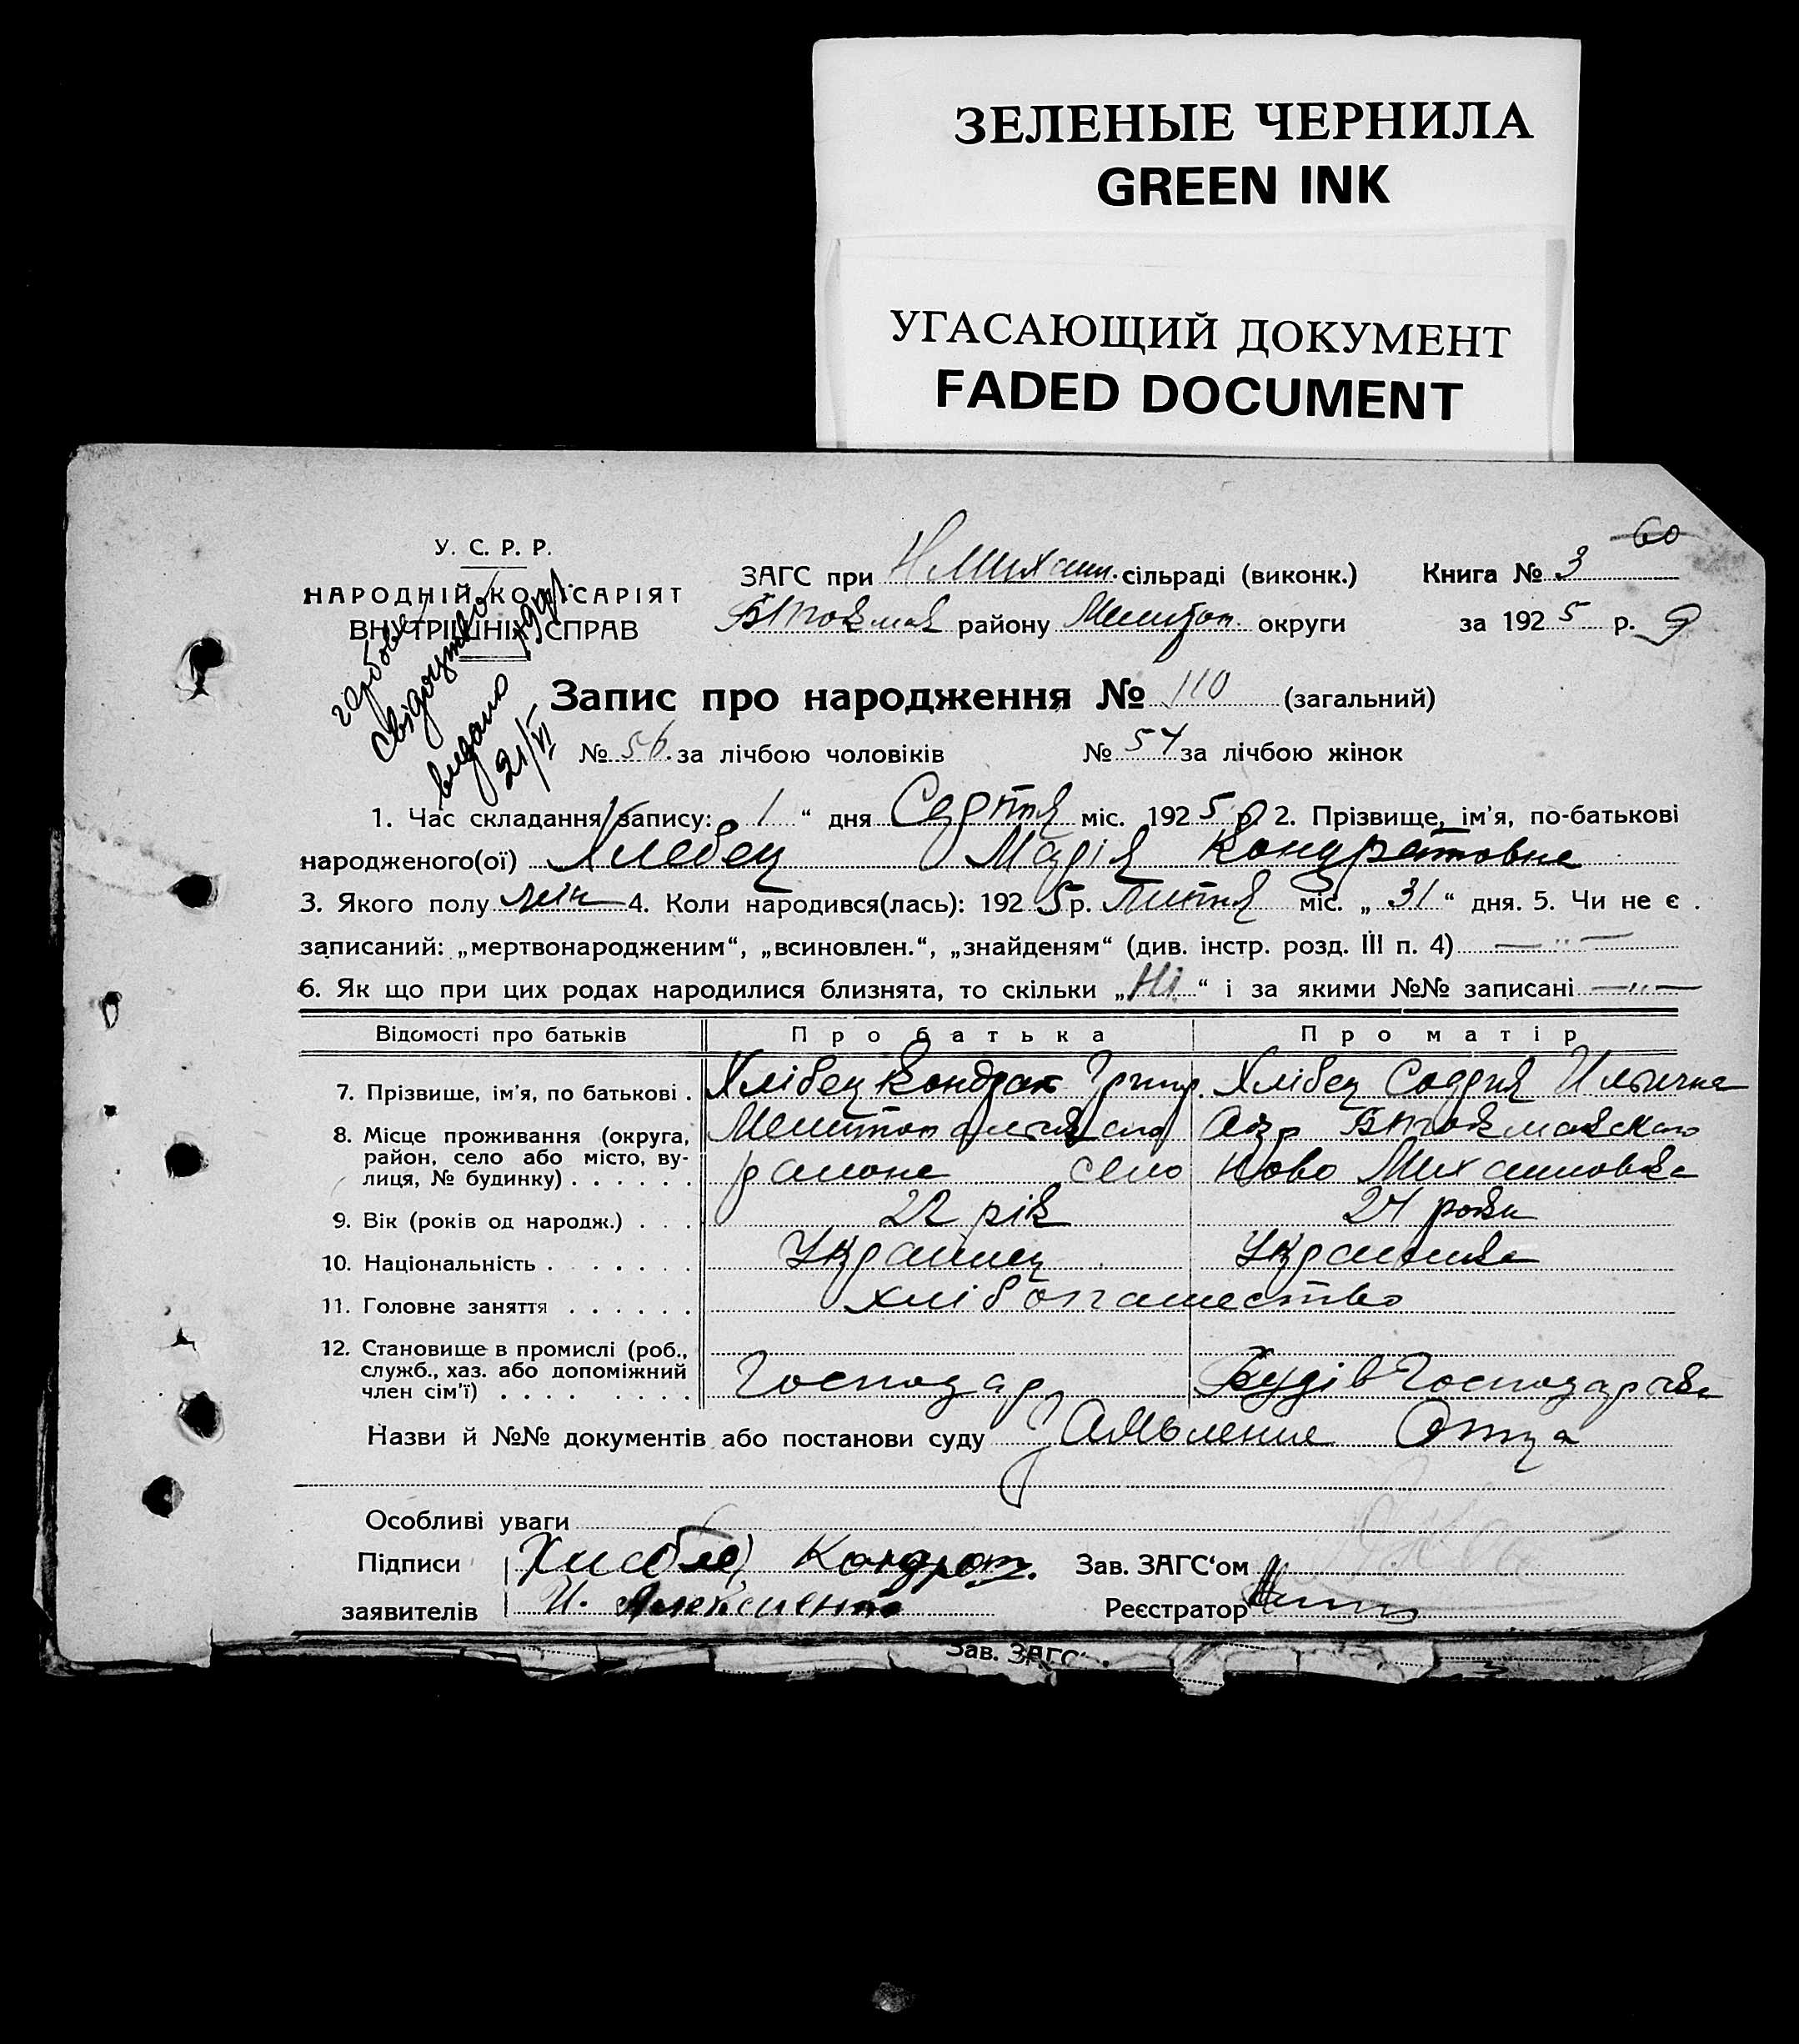 ЗЕЛЕНЫЕ ЧЕРНИЛА
GREEN INK
УГАСАЮЩИЙ ДОКУМЕНТ
FADED DOCUMENT
60
У. С. Р. Р.
НАРОДНІЙ КОМІСАРІЯТ
ВНУТРІШНІХ СПРАВ
гербове
свідоцтво
видано 1941
21/VI
ЗАГС при Н Михайл. сільраді (виконк.) Книга № 3
БТокмак району Мелитоп. округи за 1925 р. 9
Запис про народження № 110 (загальний)
№ 56. за лічбою чоловіків № 54 за лічбою жінок
1. Час складання запису: 1 “ дня Серпня міс. 1925 р. 2. Прізвище, ім'я, по-батькові
народженого(ої) Хлебец Марія Кондратовна
3. Якого полу жін 4. Коли народився(лась): 1925 р. Липня міс. „ 31 “ дня. 5. Чи не є
записаний: „мертвонародженим“, „всиновлен.“, „знайденям“ (див. інстр. розд. III п. 4) — „ —
6. Як що при цих родах народилися близнята, то скільки „ Ні “ і за якими №№ записані — „ —
Відомості про батьків Про батька Про матір
7. Прізвище, ім'я, по батькові . Хлібец Кондрат Григор. Хлібец София Ильична
8. Місце проживання (округа, район, село або місто, вулиця, № будинку) . . . . . . Мелитопольской БТокмакского
района село Ново Михайловка
9. Вік (років од народж.) . . . 22 рік 24 роки
10. Національність . . . . . . Украинец Украинка
11. Головне заняття . . . . . . хлібопашество
12. Становище в промислі (роб., служб., хаз. або допоміжний член сім'ї) . . . . . . . . . Господар Господарка
Назви й №№ документів або постанови суду Заявление Отца
Особливі уваги
Підписи Хлебец Кондрат. Зав. ЗАГС'ом
заявителів И. Алексиенко Реєстратор
Зав. ЗАГС'